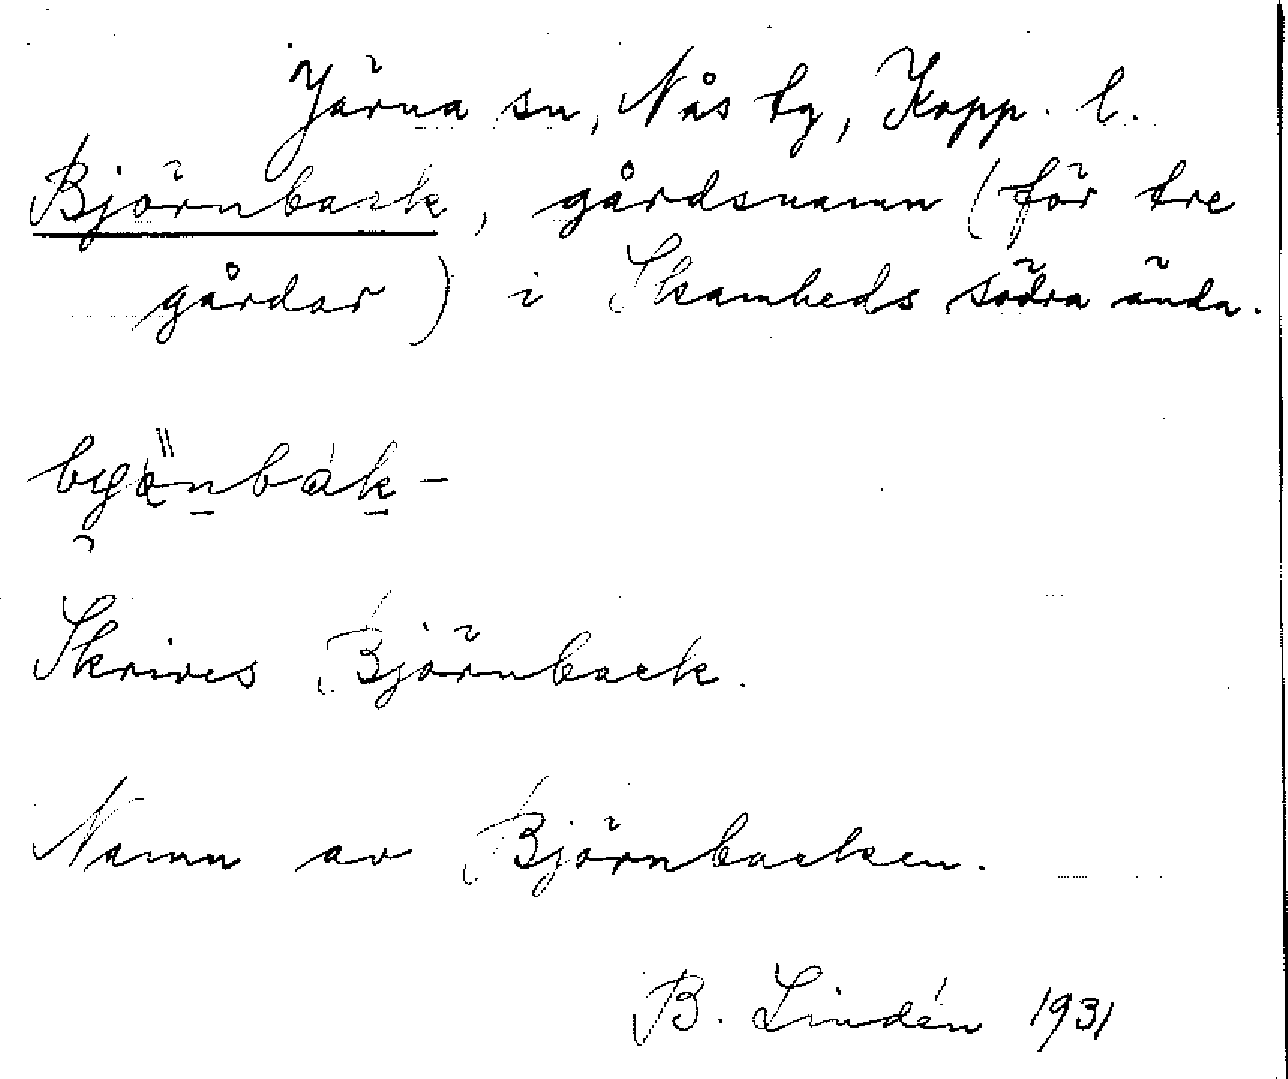 Järna sn, Nås tg, Kopp. l.
Björnback, gårdsnamn (för tre
gårdar) i Skamheds södra ända.
Skrives Björnback.
Namn av Björnbacken.
B. Lindén 1931